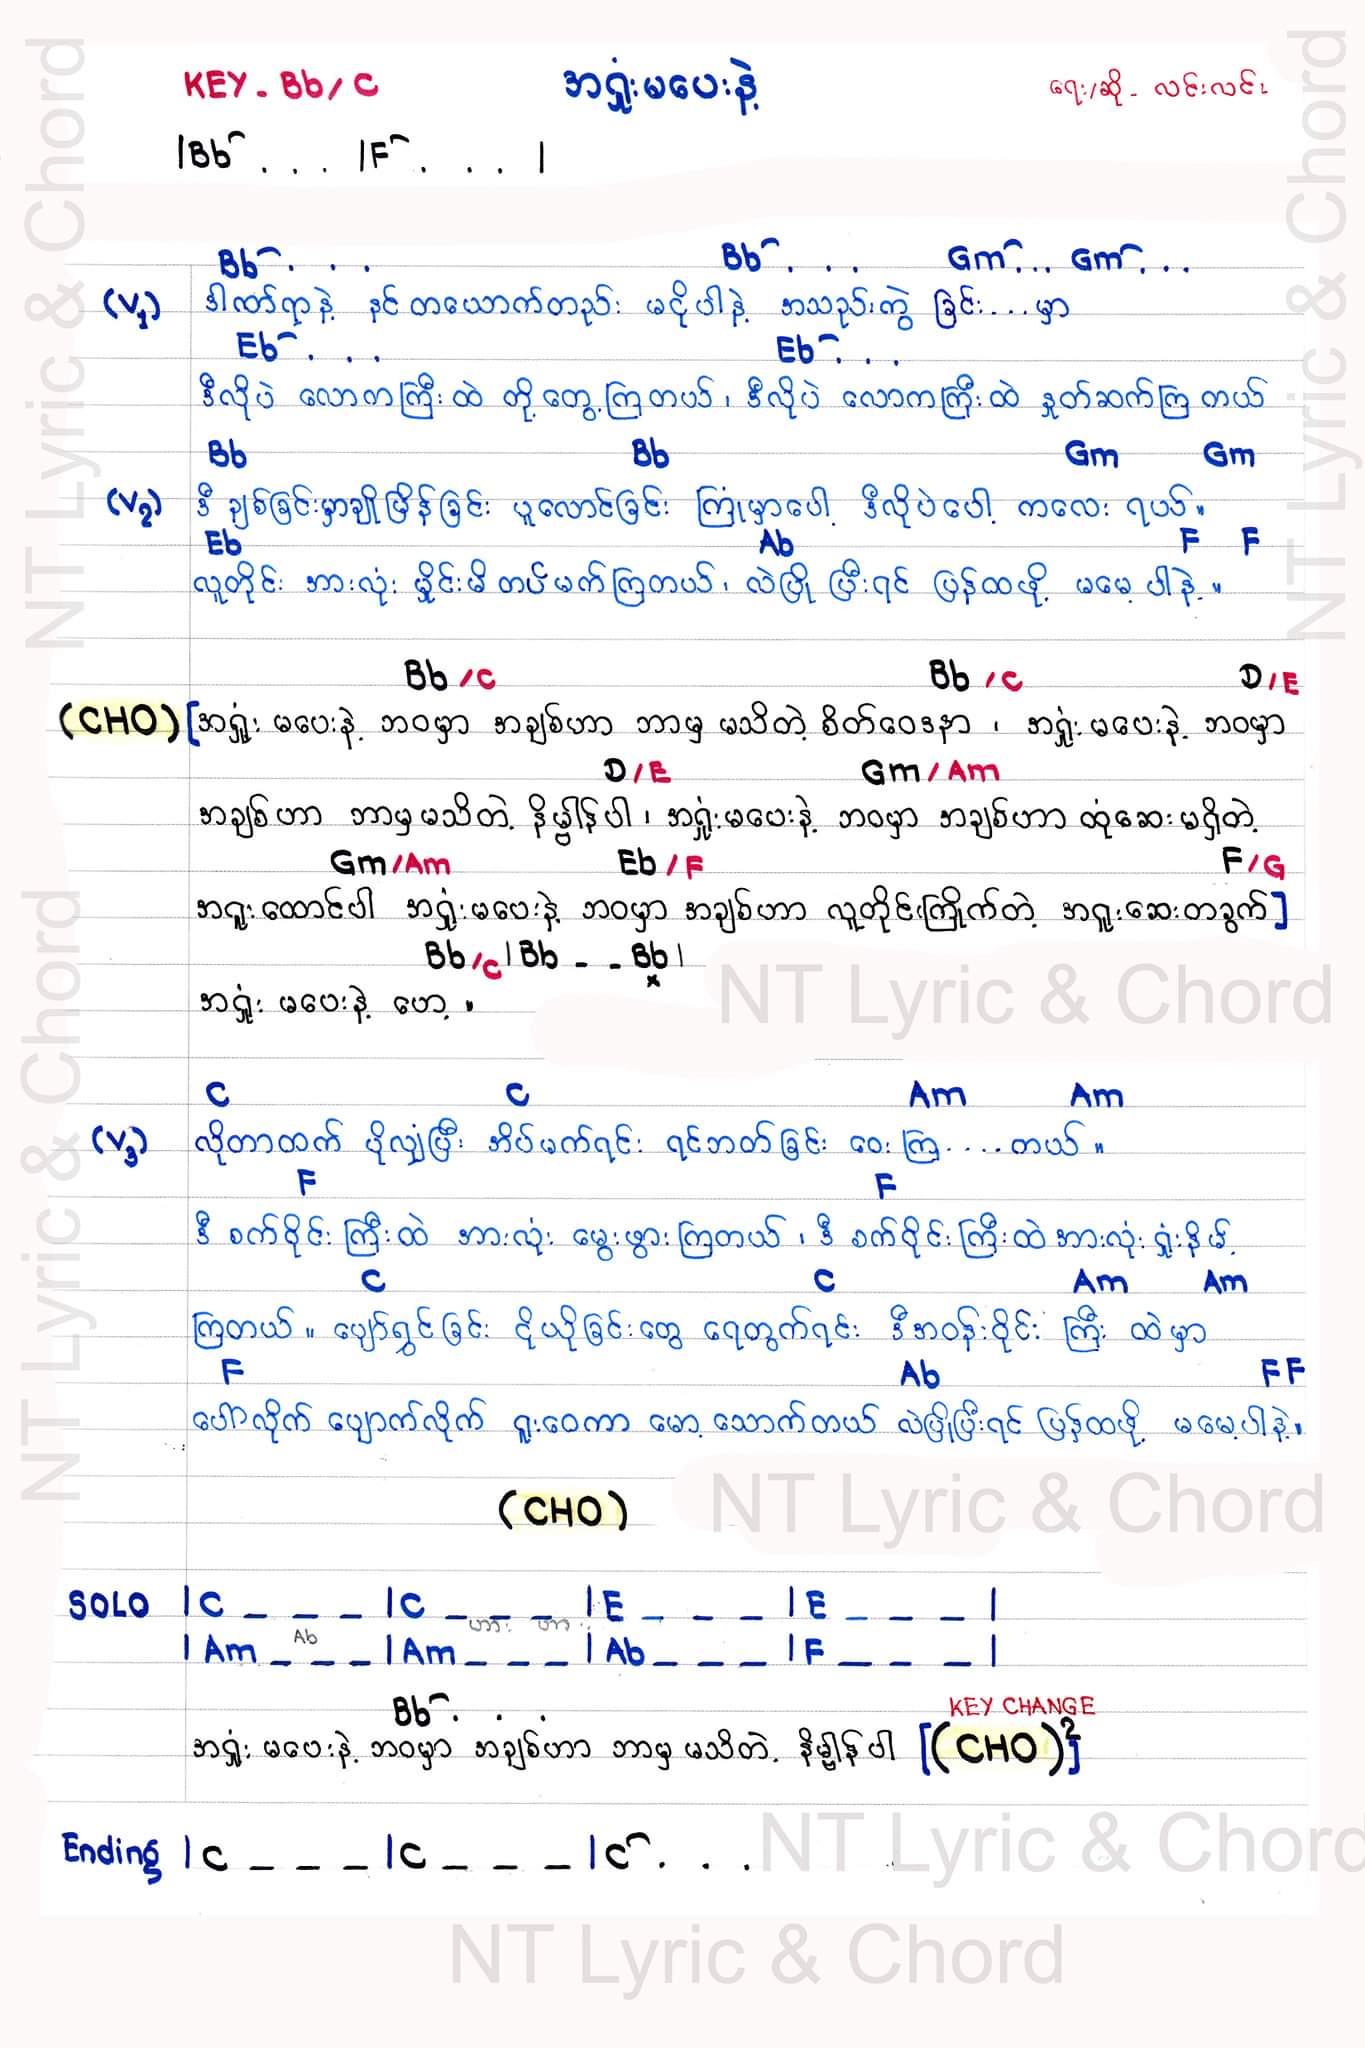 KEY - Bb / C အရှုံးမပေးနဲ့ ရေး/ဆို - လင်းလင်း
|Bb . . . |F . . . |
Bb . . . Bb . . . Gm . . . Gm . . .
(V1) ဒါဏ်ရာနဲ့ နင်တယောက်တည်း မငိုပါနဲ့ အသည်းကွဲ ခြင်း....မှာ
Eb . . . Eb . . .
ဒီလိုပဲ လောကကြီးထဲ တို့တွေ့ကြတယ်၊ ဒီလိုပဲ လောကကြီးထဲ နှုတ်ဆက်ကြတယ်
Bb Bb Gm Gm
(V2) ဒီ ချစ်ခြင်းမှာချိုမြိန်ခြင်း ပူလောင်ခြင်း ကြုံမှာပေါ့ ဒီလိုပဲပေါ့ ကလေး ရယ်။
Eb Ab F F
လူတိုင်း အားလုံး မှိုင်းမိတပ်မက်ကြတယ်၊ လဲပြို ပြီးရင် ပြန်ထဖို့ မမေ့ပါနဲ့။
Bb /C Bb /C D/E
(CHO) [အရှုံး မပေးနဲ့ ဘဝမှာ အချစ်ဟာ ဘာမှ မသိတဲ့ စိတ်ဝေဒနာ ၊ အရှုံးမပေးနဲ့ ဘဝမှာ
D/E Gm/Am
အချစ်ဟာ ဘာမှမသိတဲ့ နိဗ္ဗါန်ပါ၊ အရှုံးမပေးနဲ့ ဘဝမှာ အချစ်ဟာ ထုံဆေးမရှိတဲ့
Gm/Am Eb/F F/G
အရူးထောင်ပါ အရှုံးမပေးနဲ့ ဘဝမှာ အချစ်ဟာ လူတိုင်းကြိုက်တဲ့ အရူးဆေးတခွက်]
Bb/C |Bb - - Bb |
x
အရှုံး မပေးနဲ့ ဟေ့။
C C Am Am
(V3) လိုတာထက် ပိုလျှံပြီး အိပ်မက်ရင်း ရင်ဘတ်ခြင်း ဝေးကြ....တယ်။
F F
ဒီ စက်ဝိုင်းကြီးထဲ အားလုံး မွေးဖွားကြတယ်၊ ဒီ စက်ဝိုင်းကြီးထဲအားလုံး ရှုံးနိမ့်
C C Am Am
ကြတယ်။ ပျော်ရွှင်ခြင်း ငိုယိုခြင်းတွေ ရေတွက်ရင်း ဒီအဝန်းဝိုင်း ကြီး ထဲမှာ
F Ab F F
ပေါ်လိုက် ပျောက်လိုက် ရူးဝေကာ မော့သောက်တယ် လဲပြိုပြီးရင် ပြန်ထဖို့ မမေ့ပါနဲ့။
(CHO)
SOLO |C _ _ _ |C _ _ _ |E _ _ _ |E _ _ _ |
Ab
|Am _ _ _ |Am _ _ _ |Ab _ _ _ |F _ _ _ |
Bb . . . KEY CHANGE
အရှုံး မပေးနဲ့ ဘဝမှာ အချစ်ဟာ ဘာမှ မသိတဲ့ နိဗ္ဗါန်ပါ [(CHO)2]
Ending |C _ _ _ |C _ _ _ |C . . .
NT Lyric & Chord
NT Lyric & Chord
NT Lyric & Chord
NT Lyric & Chord
NT Lyric & Chord
NT Lyric & Chord
NT Lyric & Chord
NT Lyric & Chord